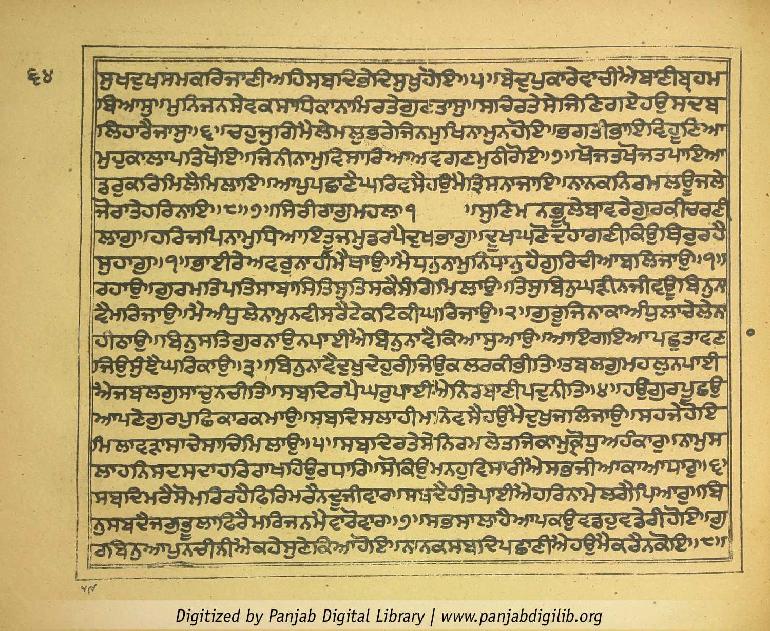 ੬੪
ਸੁਖਦੁਖਸਮਕਰਿਜਾਣੀਅਹਿਸਬਦਿਭੇਦਿਸੁਖੁਹੋਇ॥੫॥ਬੇਦੁਪੁਕਾਰੇਵਾਚੀਐਬਾਣੀਬ੍ਰਹਮ
ਬਿਆਸੁ॥ਮੁਨਿਜਨਸੇਵਕਸਾਧਿਕਾਨਾਮਿਰਤੇਗੁਣਤਾਸੁ॥ਸਚਿਰਤੇਸੇਜਿਣਿਗਏਹਉਸਦਬ
ਲਿਹਾਰੈਜਾਸੁ॥੬॥ਚਹੁਜੁਗਿਮੈਲੇਮਲੁਭਰੇਜਿਨਮੁਖਿਨਾਮੁਨਹੋਇ॥ਭਗਤੀਭਾਇਵਿਹੂਣਿਆ
ਮੁਹੁਕਾਲਾਪਤਿਖੋਇ॥ਜਿਨੀਨਾਮੁਵਿਸਾਰਿਆਅਵਗਣਮੁਠੀਰੋਇ॥੭॥ਖੋਜਤਖੋਜਤਪਾਇਆ
ਡਰੁਕਰਿਮਿਲੈਮਿਲਾਇ॥ਆਪੁਪਛਾਣੈਘਰਿਵਸੈਹਉਮੈਤ੍ਰਿਸਨਾਜਾਇ॥ਨਾਨਕਨਿਰਮਲਊਜਲੇ
ਜੋਰਾਤੇਹਰਿਨਾਇ॥੮॥੭॥ਸਿਰੀਰਾਗੁਮਹਲਾ੧ ॥ਸੁਣਿਮਨਭੂਲੇਬਾਵਰੇਗੁਰਕੀਚਰਣੀ
ਲਾਗੁ॥ਹਰਿਜਪਿਨਾਮੁਧਿਆਇਤੂਜਮੁਡਰਪੈਦੁਖਭਾਗੁ॥ਦੂਖਘਣੋਦੋਹਾਗਣੀਕਿਉਥਿਰੁਰਹੈ
ਸੁਹਾਗੁ॥੧॥ਭਾਈਰੇਅਵਰੁਨਾਹੀਮੈਥਾਉ॥ਮੈਧਨੁਨਾਮੁਨਿਧਾਨੁਹੈਗੁਰਿਦੀਆਬਲਿਜਾਉ॥੧॥
ਰਹਾਉ॥ਗੁਰਮਤਿਪਤਿਸਾਬਾਸਿਤਿਸੁਤਿਸਕੈਸੰਗਿਮਿਲਾਉ॥ਤਿਸੁਬਿਨੁਘੜੀਨਜੀਵਊਬਿਨੁਨਾ
ਵੈਮਰਿਜਾਉ॥ਮੈਅੰਧੁਲੇਨਾਮੁਨਵੀਸਰੈਟੇਕਟਿਕੀਘਰਿਜਾਉ॥੨॥ਗੁਰੂਜਿਨਾਕਾਅੰਧੁਲਾਚੇਲੇਨਾ
ਹੀਠਾਉ॥ਬਿਨੁਸਤਿਗੁਰਨਾਉਨਪਾਈਐਬਿਨੁਨਾਵੈਕਿਆਸੁਆਉ॥ਆਇਗਇਆਪਛੁਤਾਵਣਾ
ਜਿਉਸੁੰਞੈਘਰਿਕਾਉ॥੩॥ਬਿਨੁਨਾਵੈਦੁਖੁਦੇਹੁਰੀਜਿਉਕਲਰਕੀਭੀਤਿ॥ਤਬਲਗੁਮਹਲੁਨਪਾਈ
ਐਜਬਲਗੁਸਾਚੁਨਚੀਤਿ॥ਸਬਦਿਰਪੈਘਰੁਪਾਈਐਨਿਰਬਾਣੀਪਦੁਨੀਤਿ॥੪॥ਹਉਗੁਰਪੂਛਉ
ਆਪਣੇਗੁਰਪੁਛਿਕਾਰਕਮਾਉ॥ਸਬਦਿਸਲਾਹੀਮਨਿਵਸੈਹਉਮੈਦੁਖੁਜਲਿਜਾਉ॥ਸਹਜੇਹੋਇ
ਮਿਲਾਵੜਾਸਾਚੇਸਾਚਿਮਿਲਾਉ॥੫॥ਸਬਦਿਰਤੇਸੇਨਿਰਮਲੇਤਜਿਕਾਮਕ੍ਰੋਧੁਅਹੰਕਾਰੁ॥ਨਾਮੁਸ
ਲਾਹਨਿਸਦਸਦਾਹਰਿਰਾਖਹਿਉਰਧਾਰਿ॥ਸੋਕਿਉਮਨਹੁਵਿਸਾਰੀਐਸਭਜੀਆਕਾਆਧਾਰੁ॥੬॥
ਸਬਦਿਮਰੈਸੋਮਰਿਰਹੈਫਿਰਿਮਰੈਨਦੂਜੀਵਾਰ॥ਸਬਦੈਹੀਤੇਪਾਈਐਹਰਿਨਾਮੇਲਗੈਪਿਆਰੁ॥ਬਿ
ਨੁਸਬਦੈਜਗੁਭੂਲਾਫਿਰੈਮਰਿਜਨਮੈਵਾਰੋਵਾਰ॥੭॥ਸਭਸਾਲਾਹੈਆਪਕਉਵਡਹੁਵਡੇਰੀਹੋਇ॥ਗੁ
ਰਬਿਨੁਆਪੁਨਚੀਨੀਐਕਹੇਸੁਣੇਕਿਆਹੋਇ॥ਨਾਨਕਸਬਦਿਪਛਾਣੀਐਹਉਮੈਕਰੈਨਕੋਇ॥੮॥
Digitized by Panjab Digital Library | www.panjabdigilib.org